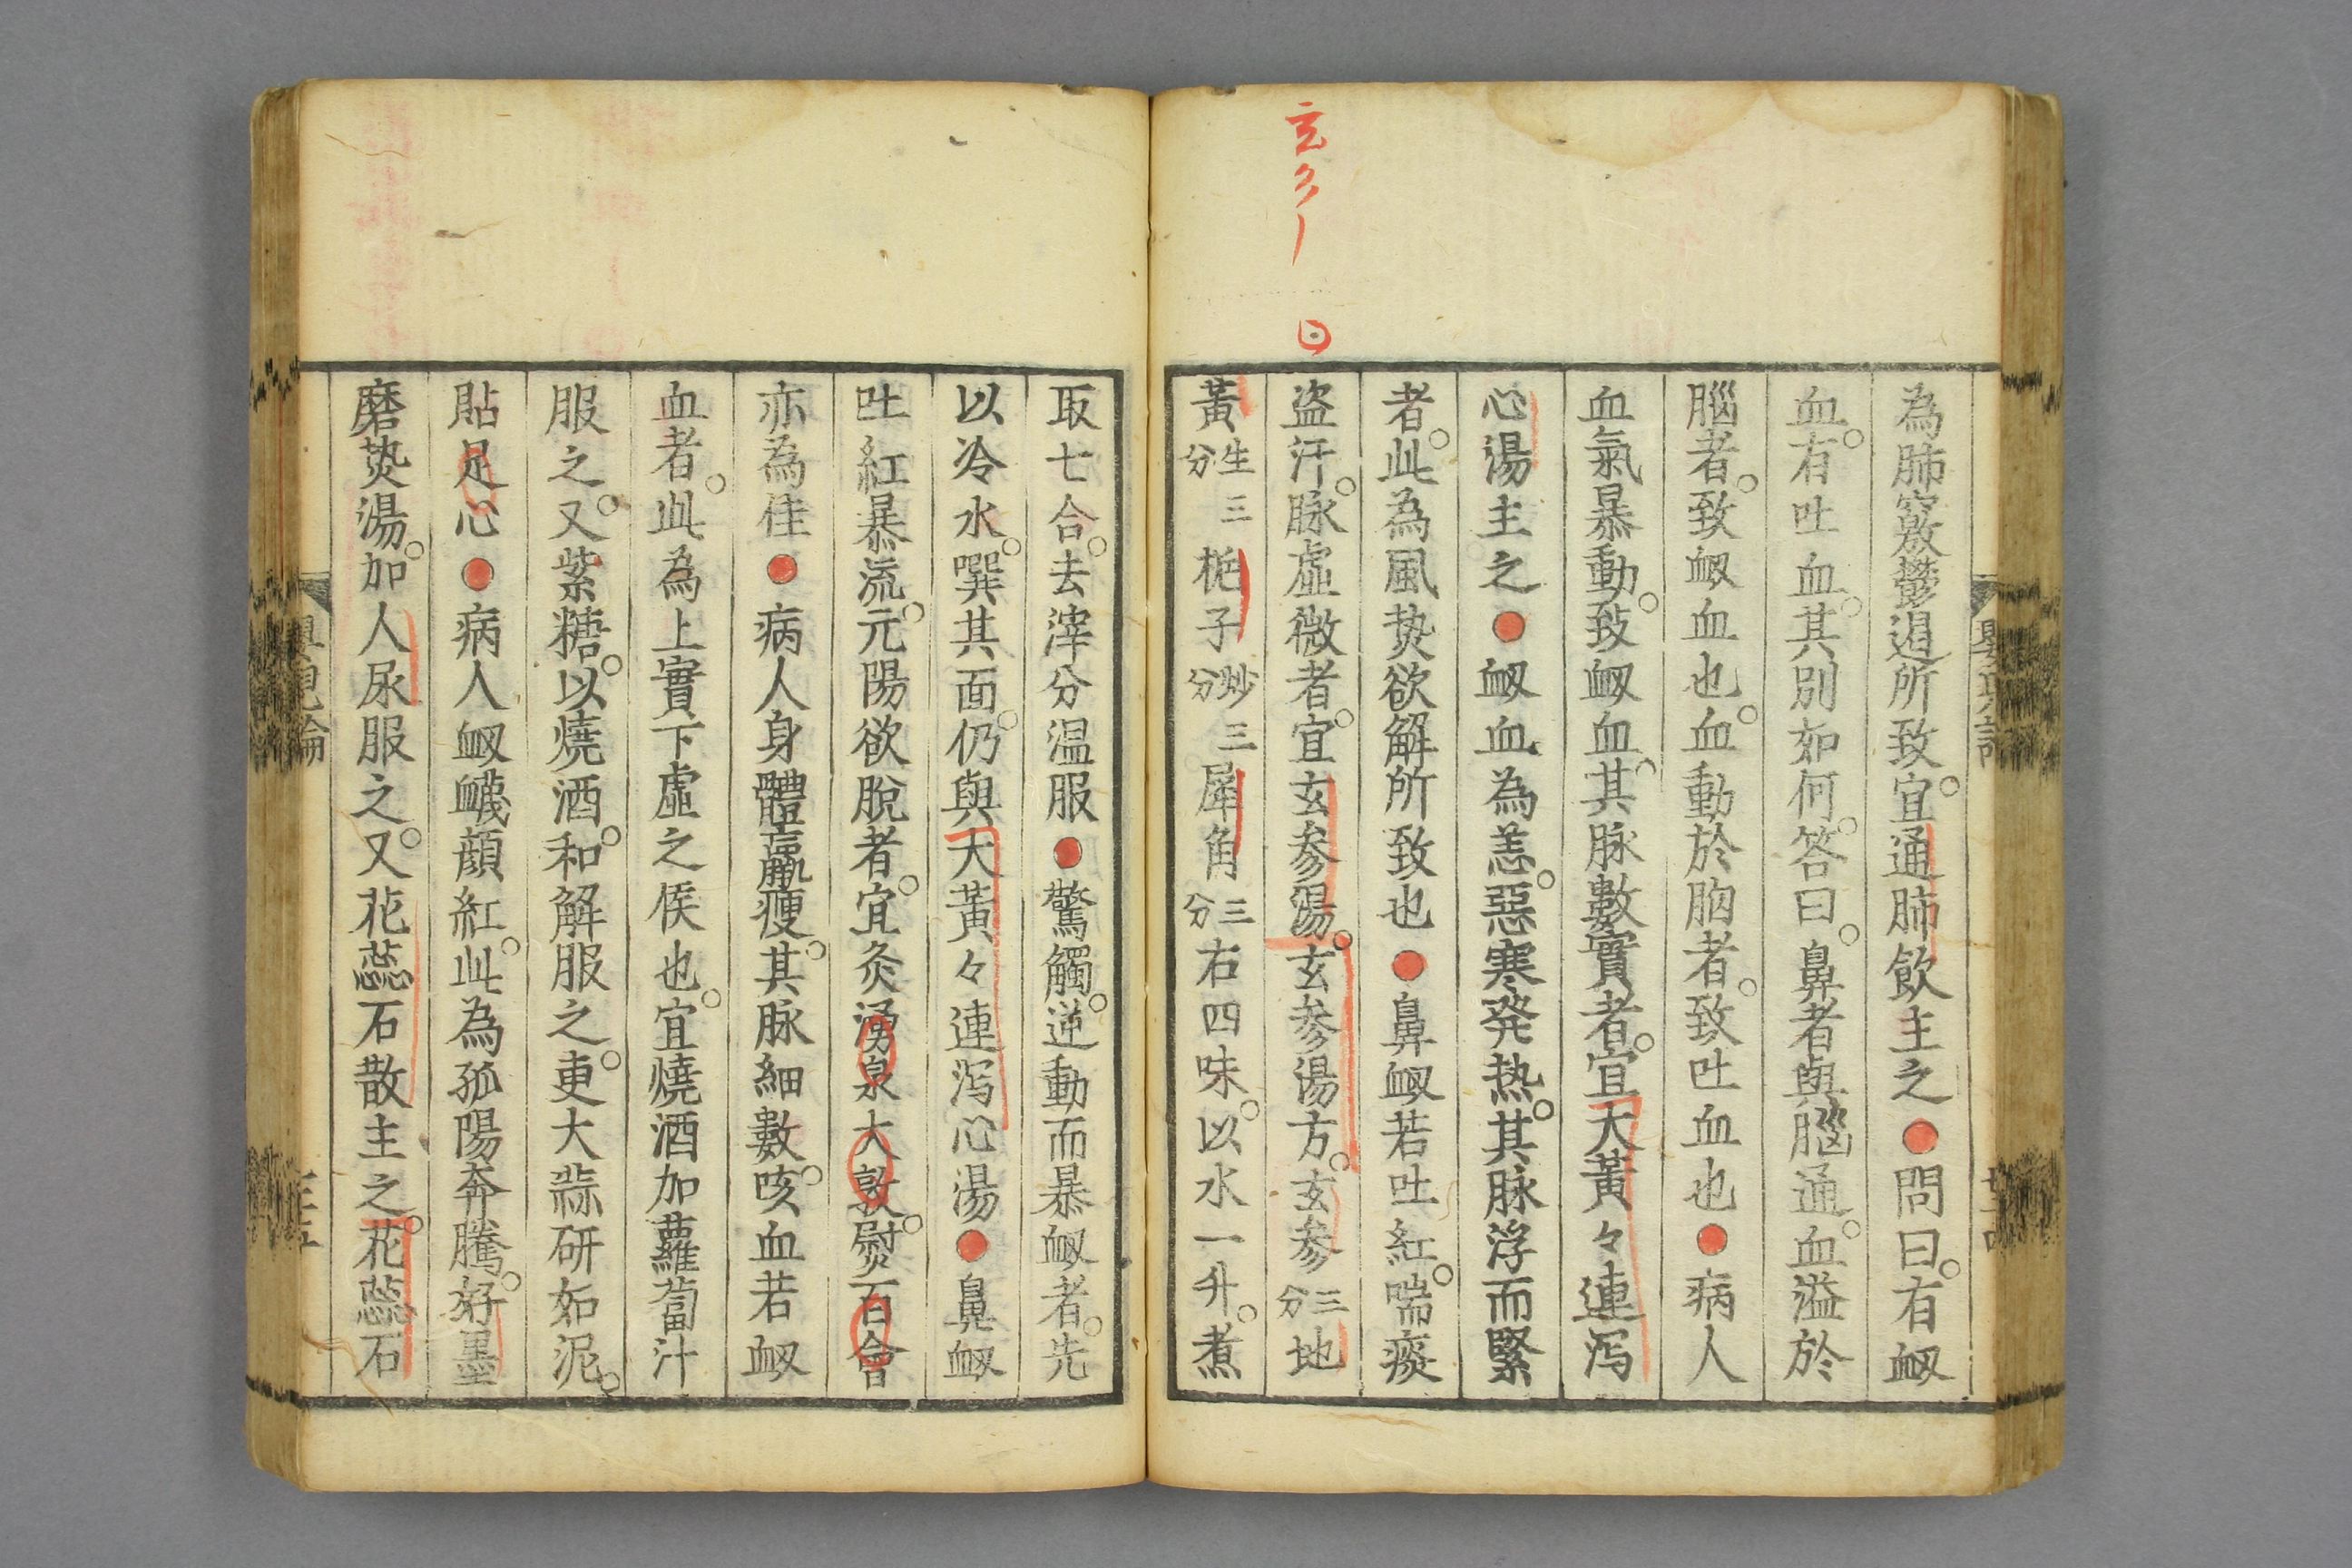 為肺竅鬱遏所致宜通肺飲主之●問曰有衂
血有吐血其別如何答曰鼻者與腦通血溢於
腦者致衂血也血動於胸者致吐血也●病人
血氣暴動致衂血其脉數實者宜大黃々連瀉
心湯主之●衂血為恙惡寒発热其脉浮而緊
者此為風热欲解所致也●鼻衂若吐紅喘痰
盗汗脉虛微者宜玄参湯玄参湯方玄参三分地
黃生三分梔子炒三分犀角三分右四味以水一升煮
取七合去滓分温服●驚觸逆動而暴衂者先
以冷水噀其面仍與大黃々連瀉心湯●鼻衂
吐紅暴流元陽欲脫者宜灸湧泉大敦熨百會
亦為佳●病人身體羸瘦其脉細數咳血若衂
血者此為上實下虛之候也宜燒酒加蘿蔔汁
服之又紫糖以燒酒和解服之更大蒜研如泥
貼足心●病人衂衊顔紅此為孤陽奔騰好墨
磨热湯加人尿服之又花蕊石散主之花蕊石